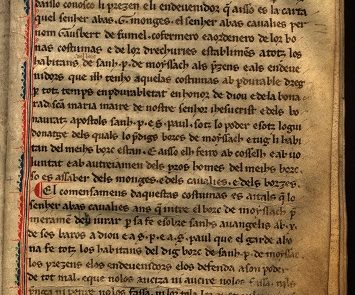 conosco li prezen els endeuenidor q̃ aisso es la carta
quel senher abas .G. monges. el senher abas caualies per
nom Gausbert de fumel. cofermero eaordenero de lor bo
nas costumas e de lor drechurias establimens. a totz los
habitans de sanh .p. de moyssach als p̃zens e als endeue
nidors que ilh tenho aquelas costumas ab pdurable dreg
p tot temps enpdurabletat en honor de diou e dela bona
rad sc̃a maria maire de nostre senher ihesucrist e dels bo
nauratz apostols sanh .p. e .s. paul. sotz lo poder e sotz logui
donatge dels quals lo p̃digs borcs de moyssach e tug li habi
tan del meihs borc estan. E aisso elh feiro ab cosselh e ab uo
luntat e ab autreiamen dels pros homes del meihs borc.
so es assaber dels monges. e dels caualies. e dels borzes.
El comensamens daquestas costumas es aitals q̃ lo
senher abas caualies ans q̃ intre el borc de moyssach p̃
meiramen deu iurar p sa fe e sobre sanhs auangelis ab .x.
de sos baros a diou e a .s. p. e a .s. paul que el garde a bo
na fe totz los habitans del dig borc de sanh .p. de moyssac
los prezens e los endeuenidors e los defenda a son poder
de tot mal. e que nolos aucira ni aucire nolos